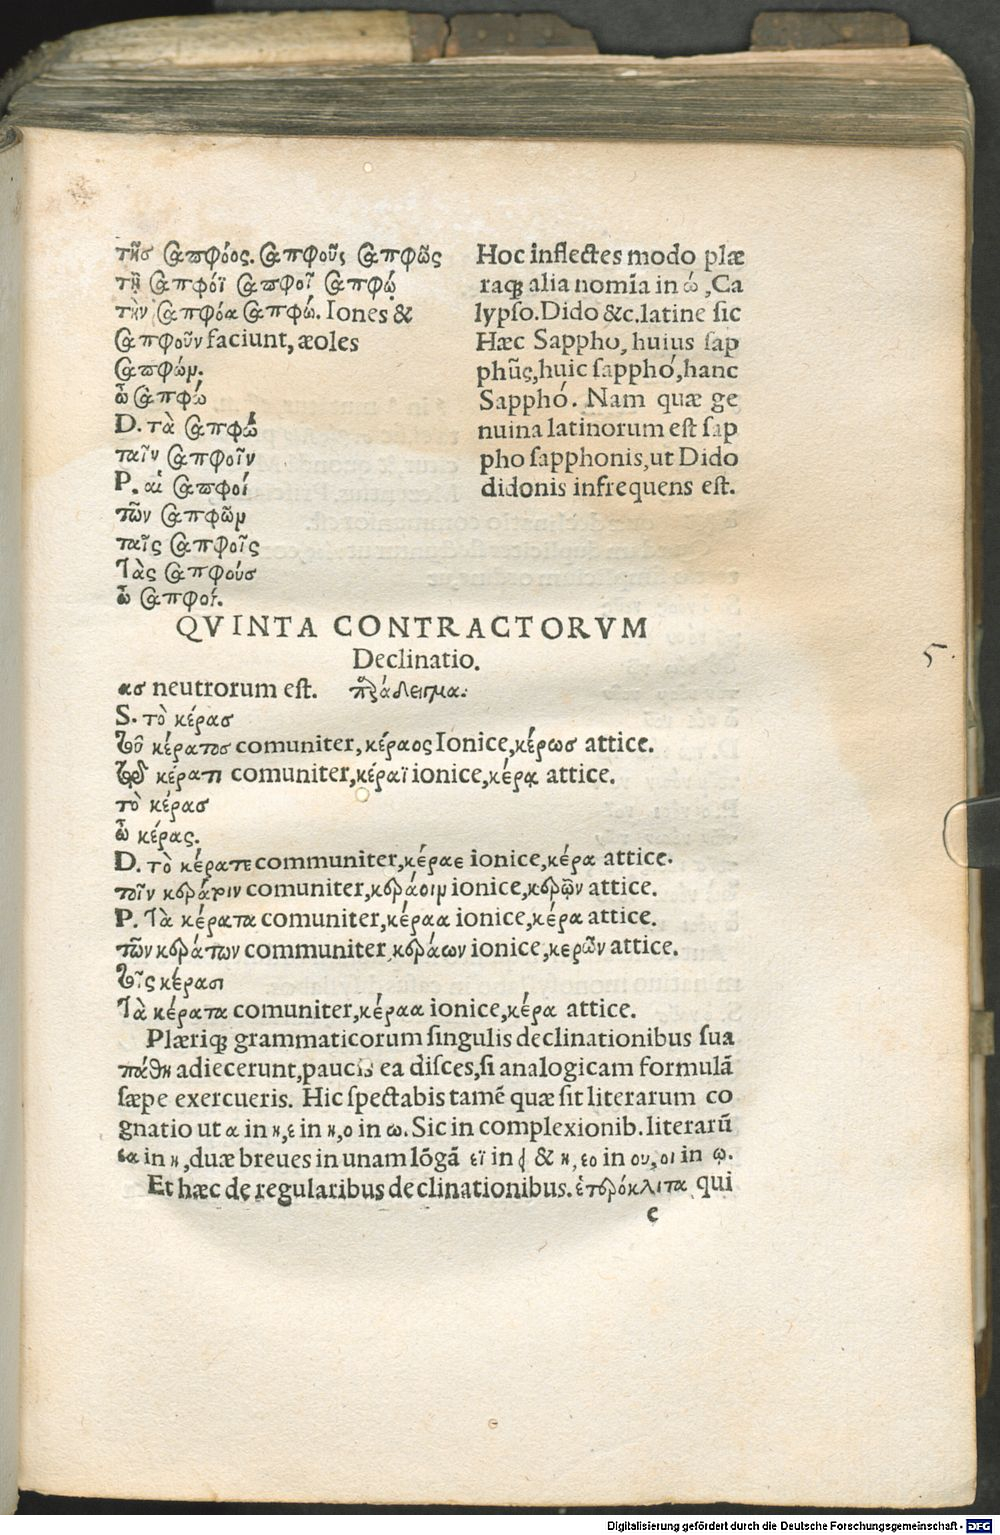 τῆσ Σαπφόος. Σαπφοῦς Σαπφῶς
τῇ Σαπφόϊ Σαπφοῖ Σαπφῷ
τὴν Σαπφόα Σαπφώ. Iones &
Σαπφοῦν faciunt, æoles
Σαπφώμ.
ὦ Σαπφώ
D. τὰ Σαπφώ
ταῖν Σαπφοῖν
P. αἱ Σαπφοί
τῶν Σαπφῶμ
ταῖς Σαπφοῖς
Τὰς Σαπφούσ
ὦ Σαπφοί.
Hoc inflectes modo plæ
raqꝫ alia nomīa in ώ, Ca
lypſo. Dido &c. latine ſic
Hæc Sappho, huius ſap
phũs, huic ſapphó, hanc
Sapphó. Nam quæ ge
nuina latinorum eſt ſap
pho ſapphonis, ut Dido
didonis infrequens eſt.
QVINTA CONTRACTORVM
Declinatio.
ασ neutrorum eſt. παράδειγμα.
S. τὸ κέρασ
Τοῦ κέρατοσ comuniter, κέραος Ionice, κέρωσ attice.
Τῷ κέρατι comuniter, κέραϊ ionice, κέρᾳ attice.
τὸ κέρασ
ὦ κέρας.
D. τὸ κέρατε communiter, κέραε ionice, κέρα attice.
τοῖν κεράτοιν comuniter, κεράοιμ ionice, κερῷν attice.
P. Τὰ κέρατα comuniter, κέραα ionice, κέρα attice.
τῶν κεράτων communiter κεράων ionice, κερῶν attice.
Τοῖς κέρασι
Τὰ κέρατα comuniter, κέραα ionice, κέρα attice.
Plæriqꝫ grammaticorum ſingulis declinationibus ſua
πάθη adiecerunt, paucis ea diſces, ſi analogicam formulã
ſæpe exercueris. Hic ſpectabis tamẽ quæ ſit literarum co
gnatio ut α in η, ε in η, ο in ω. Sic in complexionib. literarũ
εα in η, duæ breues in unam lõgã εϊ in ει & η, εο in ου, οι in ῳ.
Et hæc de regularibus declinationibus. ἑτερόκλιτα qui
e
5.
Digitalisierung gefördert durch die Deutsche Forschungsgemeinschaft - DFG